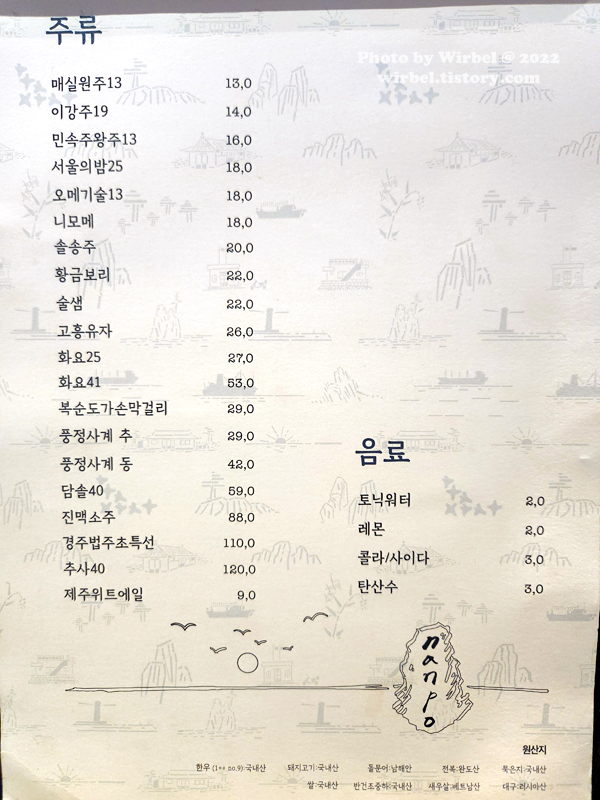 주류
Photo by Wirbel @ 2022
wirbel.tistory.com
매실원주13 13,0
이강주19 14,0
민속주왕주13 16,0
서울의밤25 18,0
오메기술13 18,0
니모메 18,0
솔송주 20,0
황금보리 22,0
술샘 22,0
고흥유자 26,0
화요25 27,0
화요41 53,0
복순도가손막걸리 29,0
풍정사계 추 29,0
풍정사계 동 42,0
담솔40 59,0
진맥소주 88,0
경주법주초특선 110,0
추사40 120,0
제주위트에일 9,0
음료
토닉워터 2,0
레몬 2,0
콜라/사이다 3,0
탄산수 3,0
nanpo
원산지
한우 (1++ no.9):국내산 돼지고기:국내산 돌문어:남해안 전복:완도산 묵은지:국내산
쌀:국내산 반건조중하:국내산 새우살:베트남산 대구:러시아산